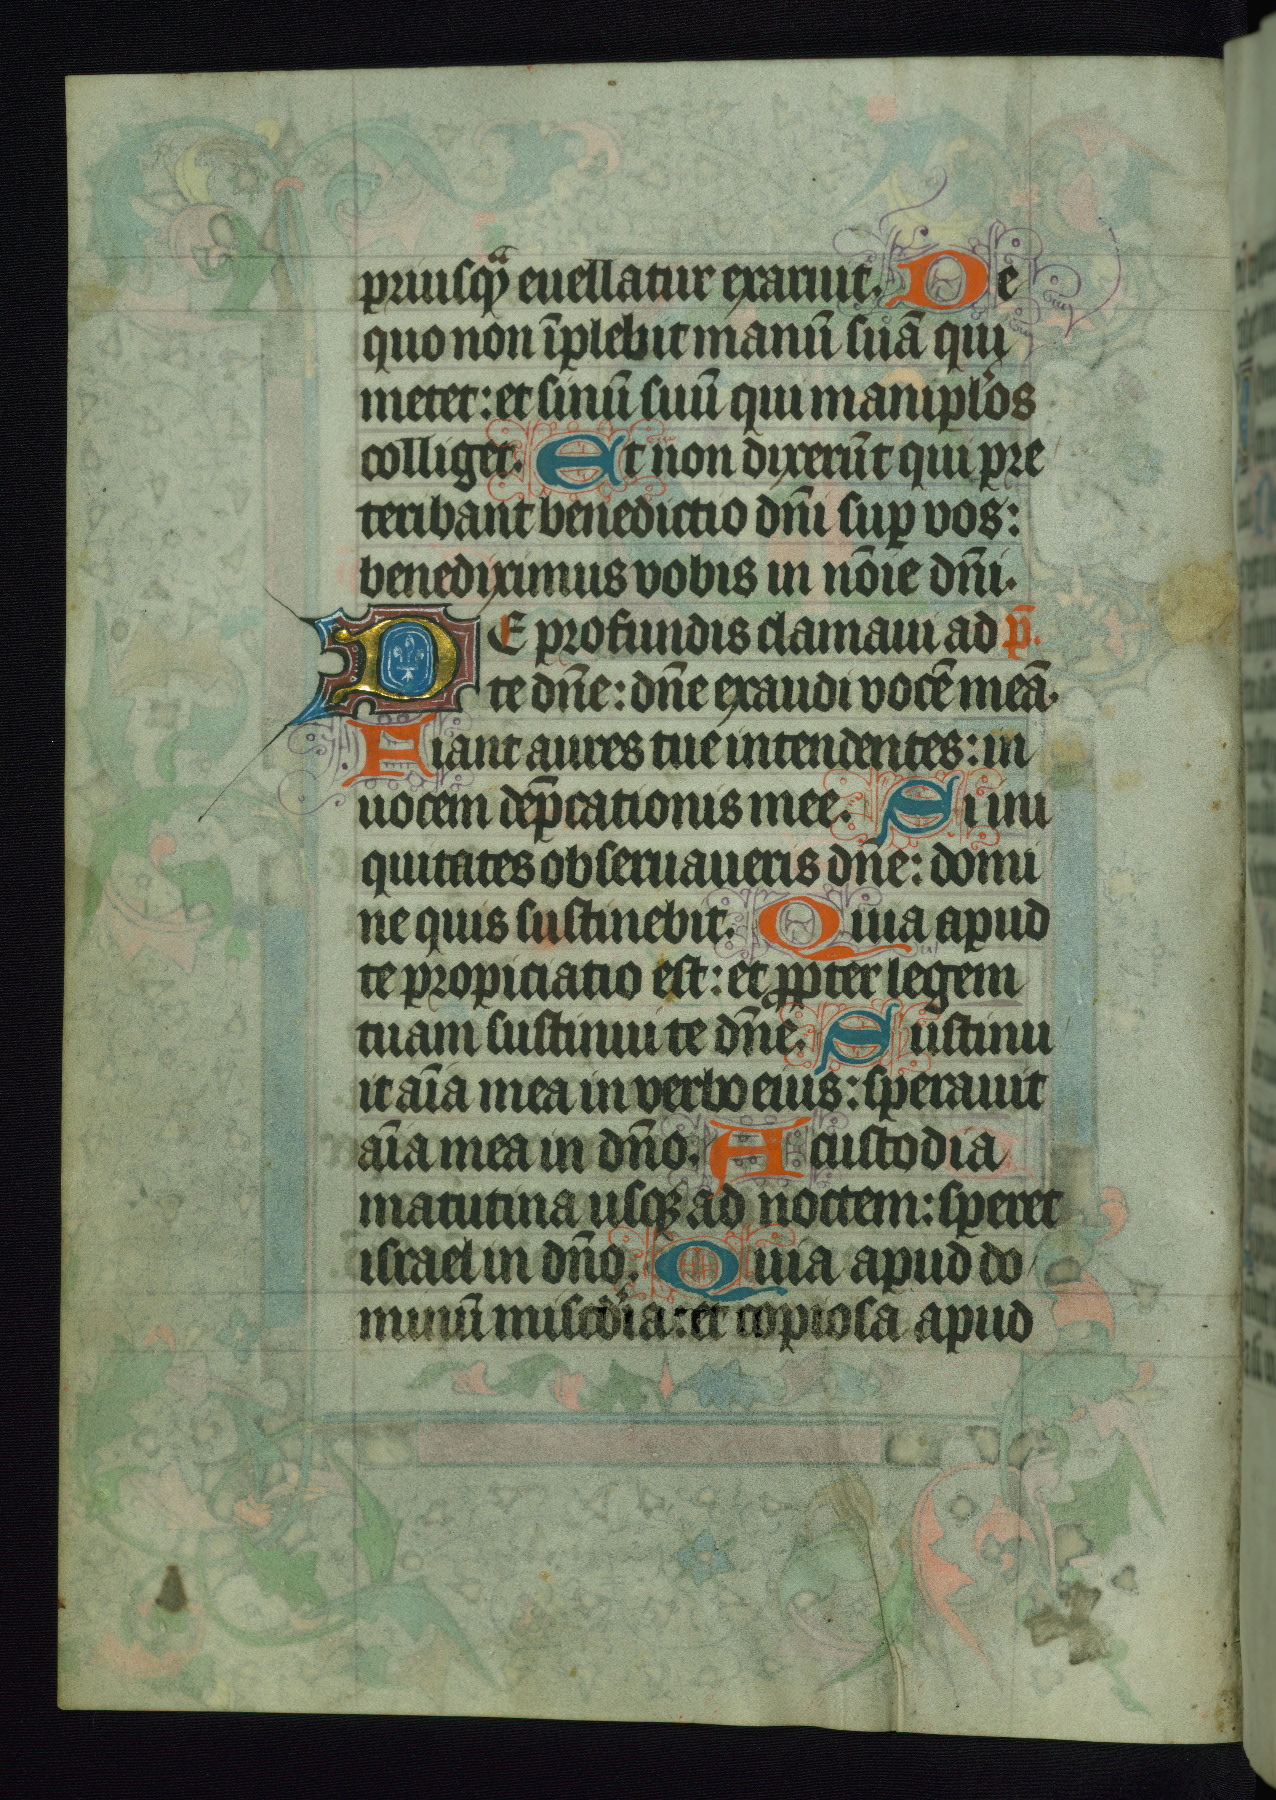 priusq̃ euellatur exaruit. De
quo non ĩplebit manũ suã qui
metet: et sinũ suũ qui manipl̃os
colliget. Et non dixerũt qui pre
teribant benedictio dñi suꝑ vos:
benediximus vobis in nõie dñi.
DE profundis clamaui ad p̃.
te dñe: dñe exaudi vocẽ meã.
Fiant aures tue intendentes: in
uocem dep̃cationis mee. Si ini
quitates obseruaueris dñe: domi
ne quis sustinebit. Quia apud
te propiciatio est: et ꝓpter legem
tuam sustinui te dñe. Sustinu
it aĩa mea in verbo eius: sperauit
aĩa mea in dño. A custodia
matutina usqꝫ ad noctem: speret
israel in dño. Quia apud do
minũ miscd̾ia: et copiosa apud